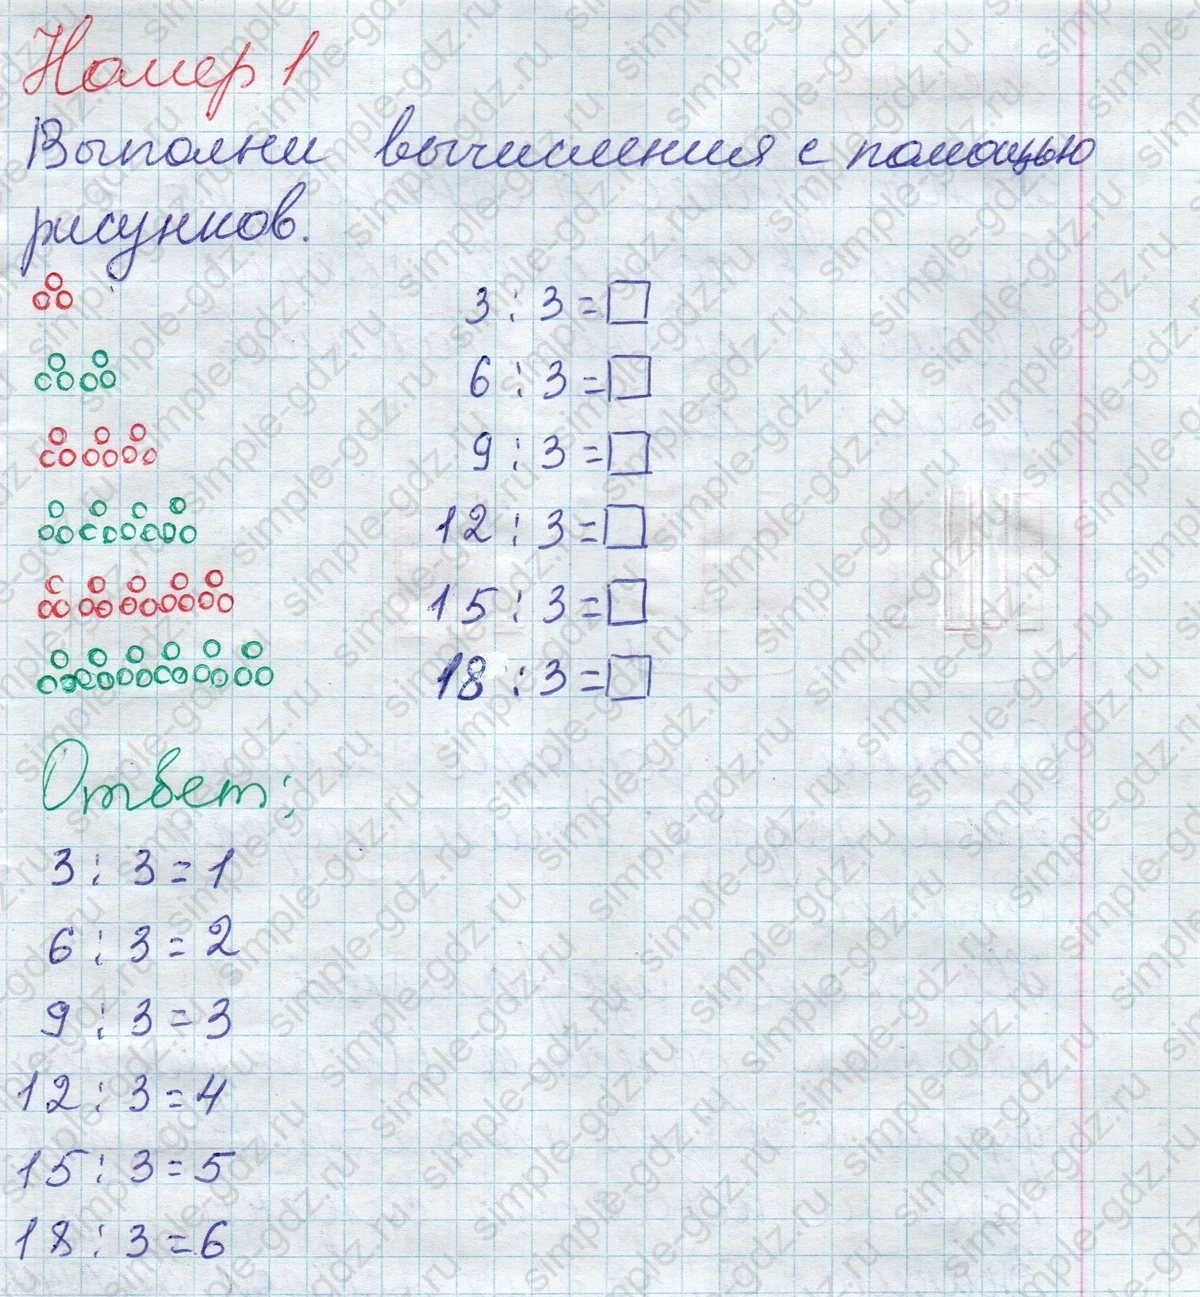 Номер 1
Выполни вычисления с помощью
рисунков.
3 : 3 = □
6 : 3 = □
9 : 3 = □
12 : 3 = □
15 : 3 = □
18 : 3 = □
Ответ:
3 : 3 = 1
6 : 3 = 2
9 : 3 = 3
12 : 3 = 4
15 : 3 = 5
18 : 3 = 6
simple-gdz.ru